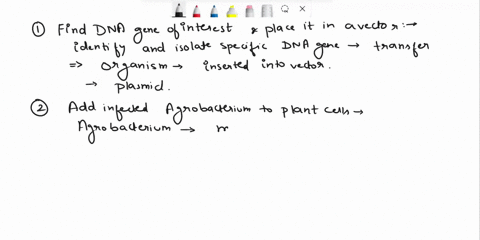 ① Find DNA gene of interest & place it in a vector:→
identify and isolate specific DNA gene → transfer
⇒ organism → inserted into vector.
→ plasmid.
② Add infected Agrobacterium to plant cells →
Agrobacterium →